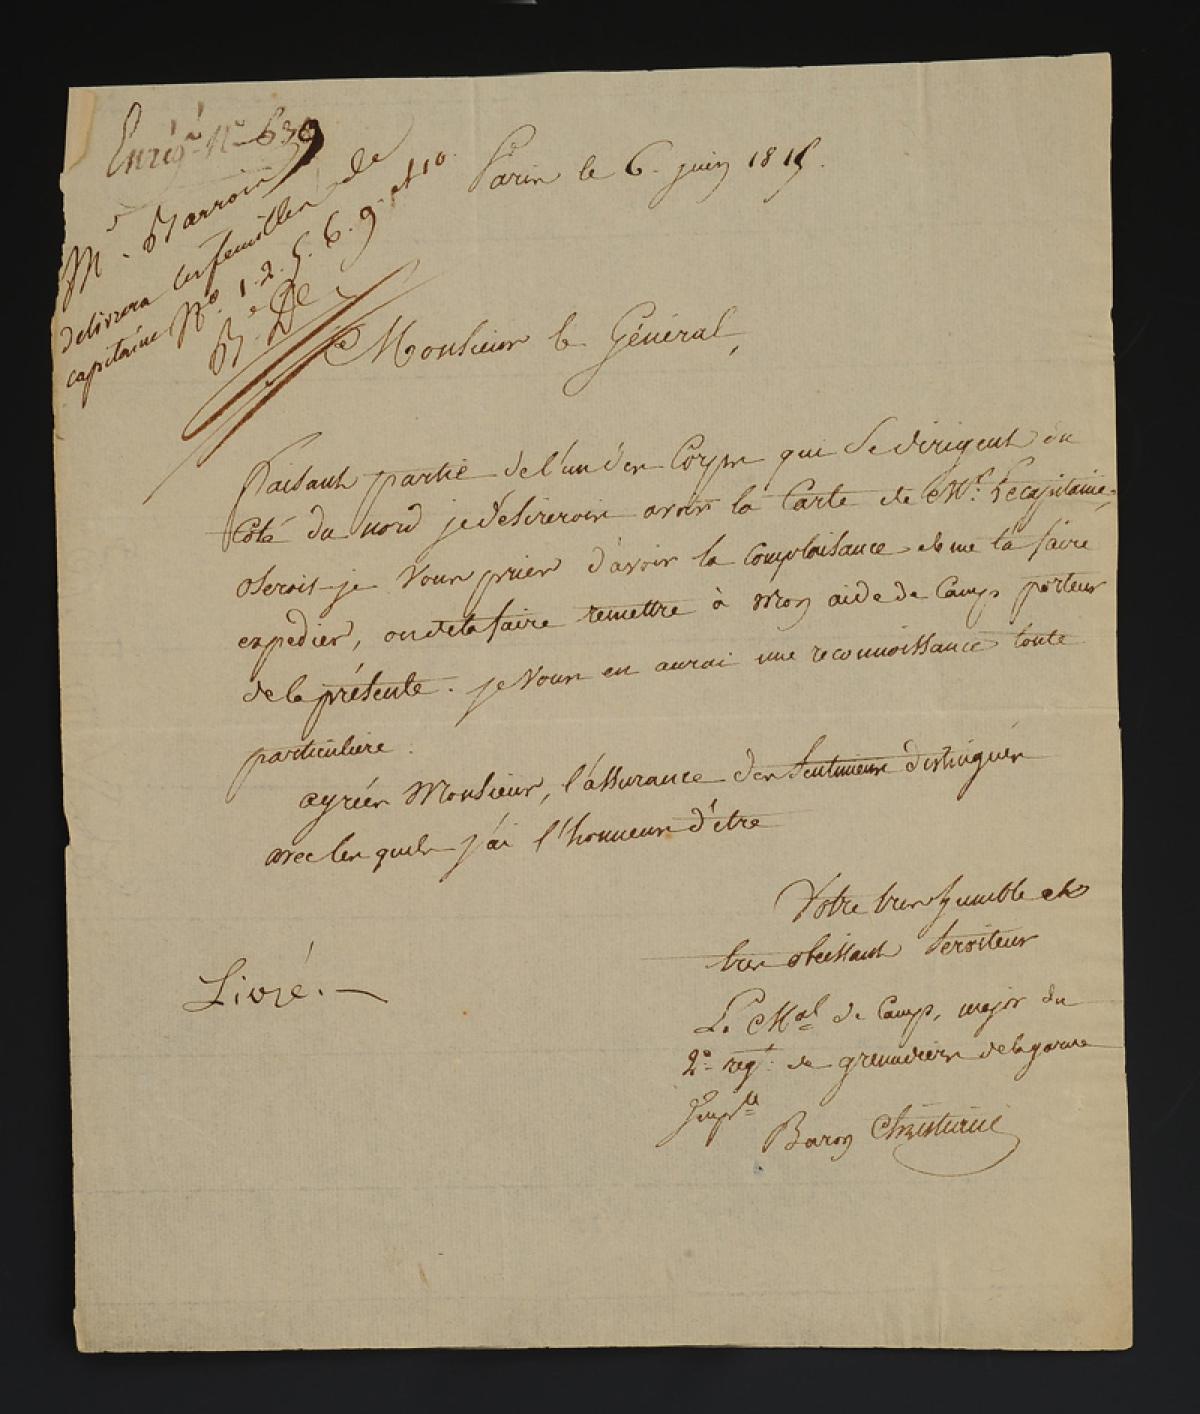 Enrég.^{tr} N.° 639
M.^r Barrois
delivrera les feuilles de
capitaine N.^{os} 1. 2. 5. 6. 9. et 10.
B. De
Paris le 6. juin 1815.
Monsieur le Général,
faisant partie de l'un des Corps qui se dirigent du
Coté du nord je désirerois avoir la Carte de M.^r Lecapitaine,
oserois-je vous prier d'avoir la Complaisance de me la faire
expedier, ou de la faire remettre à mon aide de Camp porteur
de la présente. je vous en aurai une reconnoissance toute
particulière.
agréés Monsieur, l'assurance des Sentimens distingués
avec les quels j'ai l'honneur d'être
Votre tres humble et
tres obeissant Serviteur
Le M^{al} de Camp, major du
2.^e reg.^t de grenadiers de la garde
Imp^{lle}
Baron Christiani
Livré. —